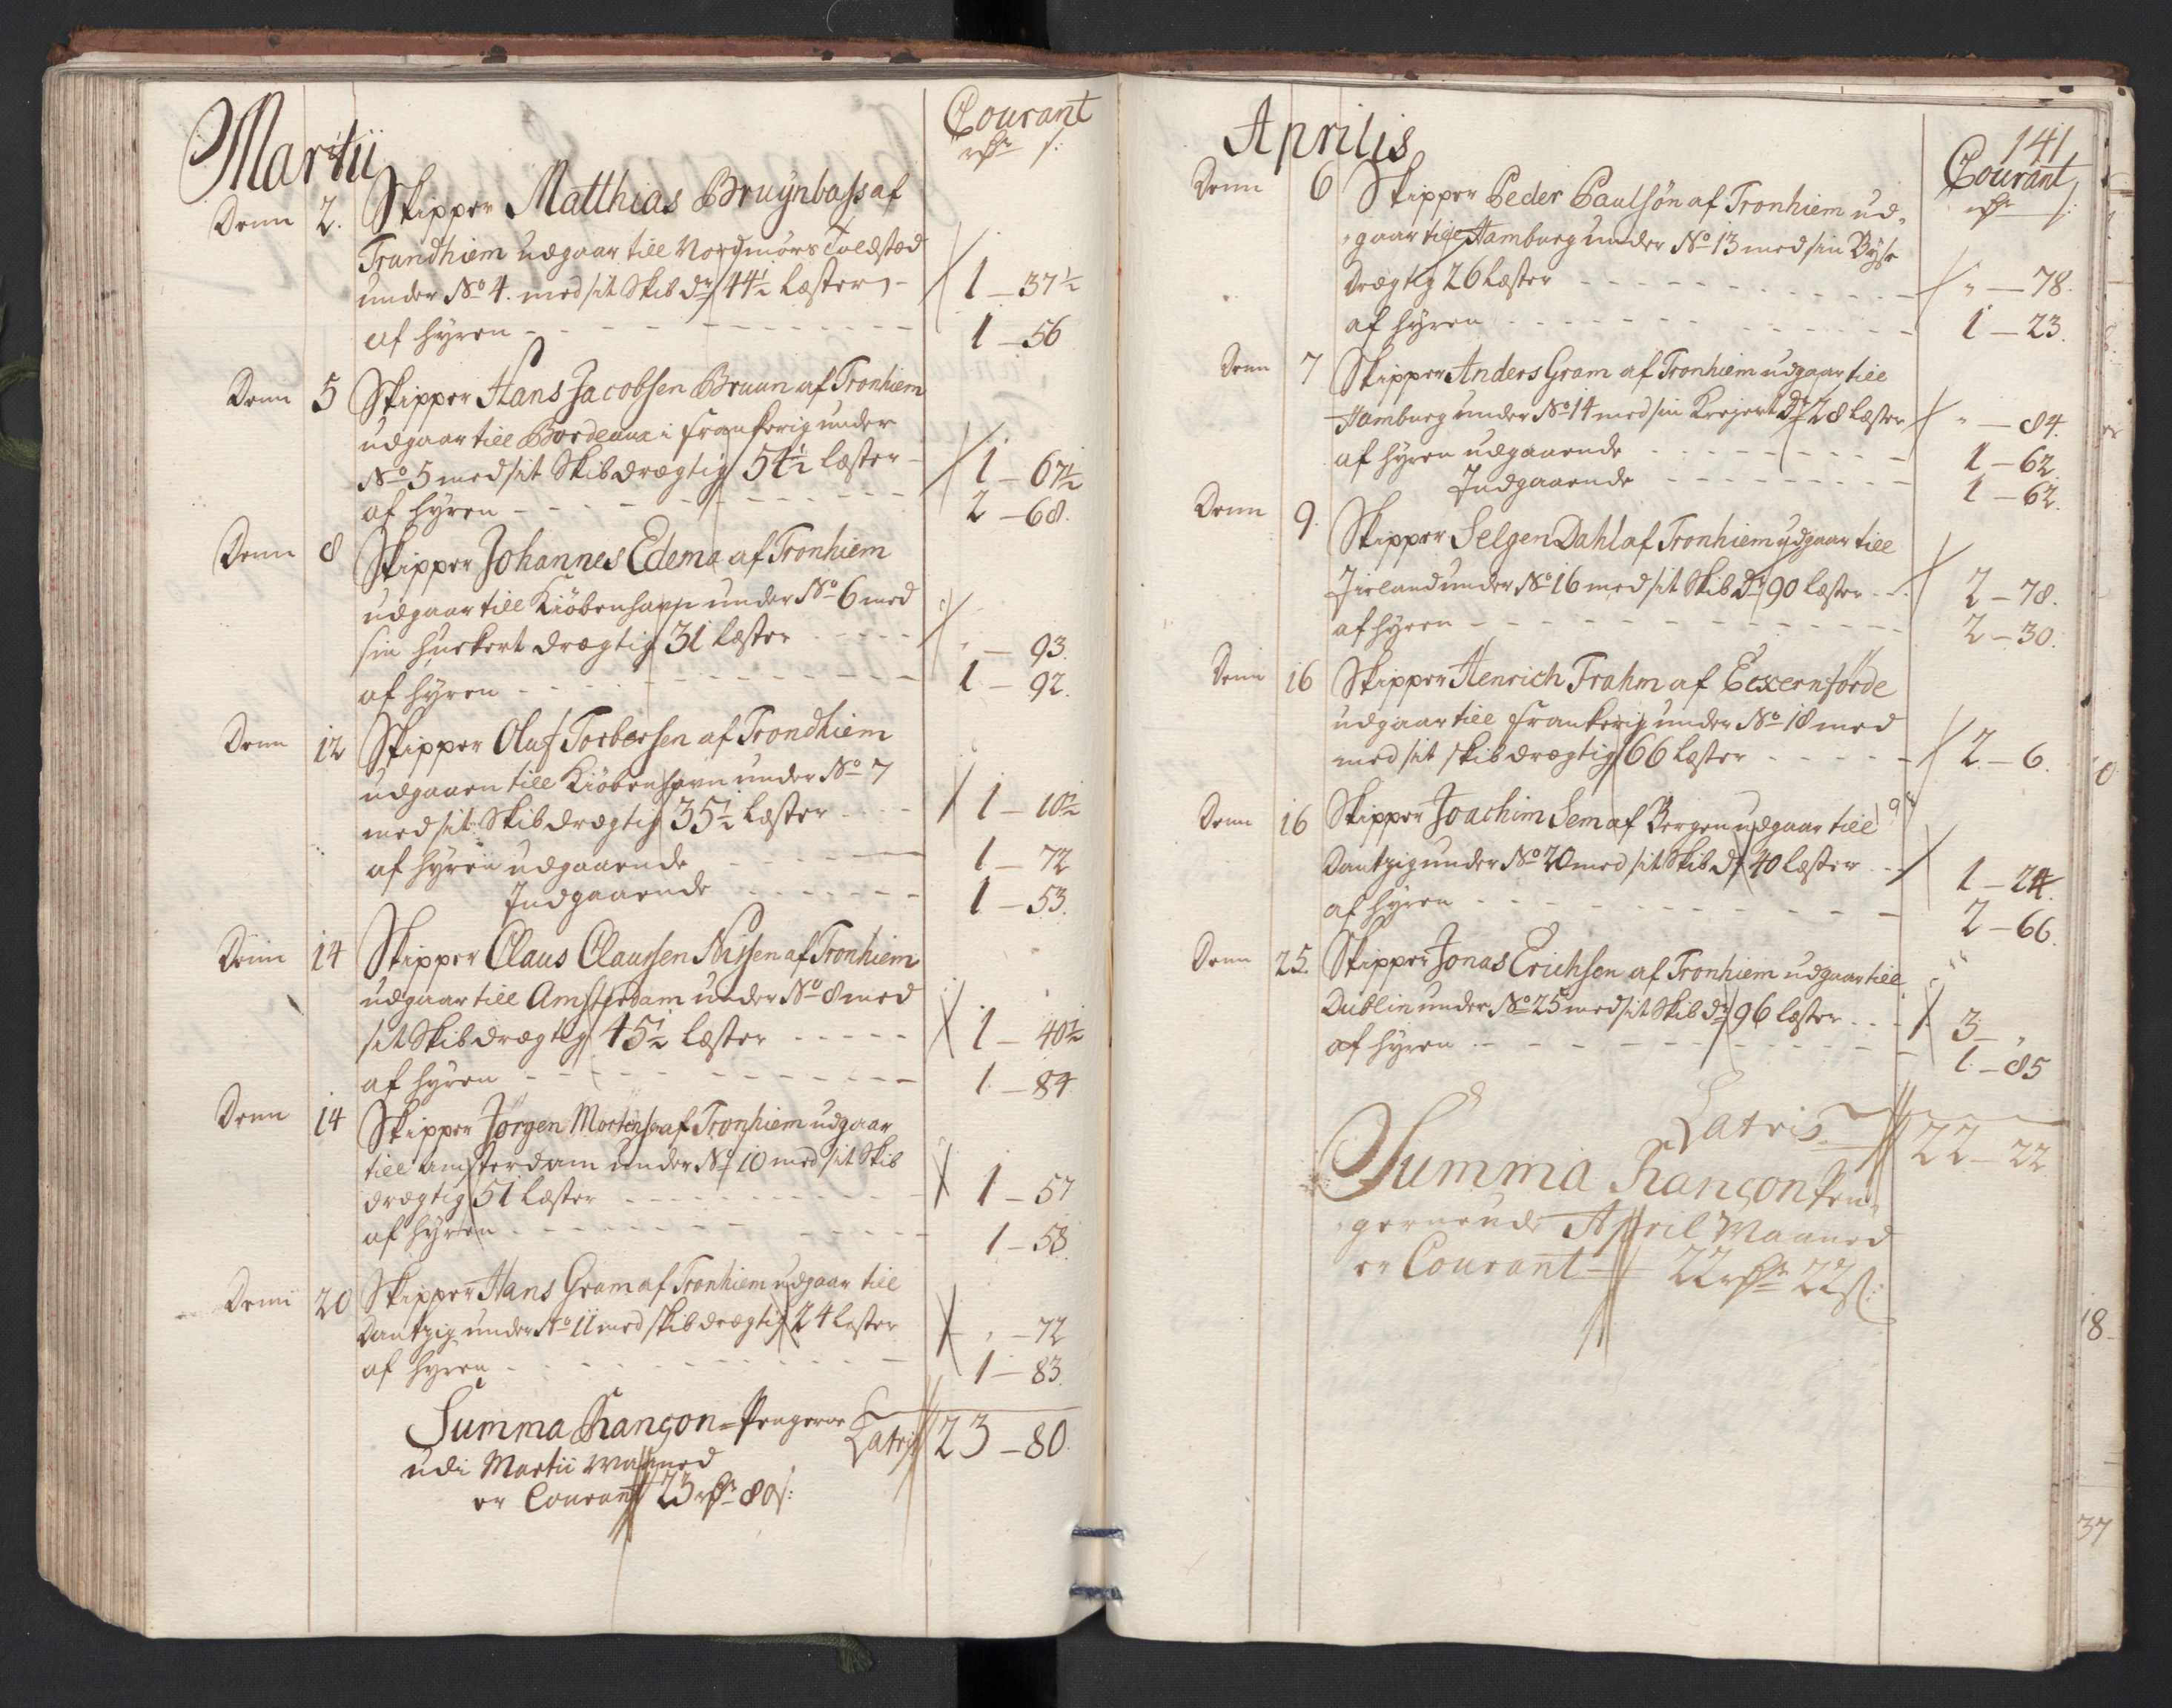 Martii
Courant
rdr s:
Denn 2. Skipper Matthias Bruynbass af
Trundhiem udgaar till Nordmörs Toldstæd
under No 4. med sit Skib dr 44½ Læster, - 1 - 37½
af hyren - - - 1 - 56
Denn 5 Skipper Hans Jacobsen Bruun af Tronhiem
udgaar till Bordeaux i Frankerig under
No 5 med sit Skib drægtig 54½ læster - 1 - 67½
af hyren - - - 2 - 68.
Denn 8 Skipper Johannes Edema af Tronhiem
udgaar till Kiöbenhafn under No 6 med
sin huckert drægtig 31 læster - - - " - 93.
af hyren - - - 1 - 92.
Denn 12 Skipper Oluf Torbersen af Trondhiem
udgaaen till Kiöbenhavn under No 7
med sit Skib drægtig 35½ læster - - - 1 - 10½
af hyren udgaaende - - - 1 - 72
Indgaaende - - - 1 - 53.
Denn 14 Skipper Claus Claussen Nissen af Tronhiem
udgaar till Amsterdam under No 8 med
sit Skib drægtig 45½ læster - - - 1 - 40½
af hyren - - - 1 - 84
Denn 14 Skipper Jörgen Mortensen af Tronhiem udgaar
till amsterdam under No 10 med sit Skib
drægtig 51 læster - - - 1 - 57
af hyren - - - 1 - 58.
Denn 20 Skipper Hans Gram af Tronhiem udgaar till
Dantzig under No 11 med skib drægtig 24 læster " - 72
af hyren - - - 1 - 83.
Summa Rançon-Pengerne Latris 23 - 80.
udi Martii Maaned
er Courant 23 rdr 80 s:
141
Aprilis
Courant
rdr s:
Denn 6 Skipper Peder Paulsøn af Tronhiem ud-
gaar till Hamburg under No 13 med sin Büse
Drægtig 26 Læster - - - " - 78.
af hyren - - - 1 - 23.
Denn 7 Skipper Anders Gram af Tronhiem udgaar till
Hamburg under No 14 med sin Krejert Dr 28 læster " - 84.
af hyren udgaaende - - - 1 - 62.
Indgaaende - - - 1 - 62.
Denn 9. Skipper Selgen Dahl af Tronhiem udgaar till
Jirland under No 16 med sit Skib Dr 90 læster - - 2 - 78.
af hyren - - - 2 - 30.
Denn 16 Skipper Henrich Frahm af Eckernförde
udgaar till Frankerig under No 18 med
med sit skib drægtig 66 læster - - - 2 - 6.
Denn 16 Skipper Joachim Sem af Bergen udgaar till
Dantzig under No 20 med sit Skib dr 40 læster - - 1 - 24.
af hyren - - - 2 - 66.
Denn 25. Skipper Jonas Erichsen af Tronhiem udgaar till
Dublin under No 25 med sit Skib dr 96 læster - - 3 - "
af hyren - - - 1 - 85
Latris 22 - 22
Summa Rançon Pen-
gerne udi April Maaned
er Courant 22 rdr 22 s: